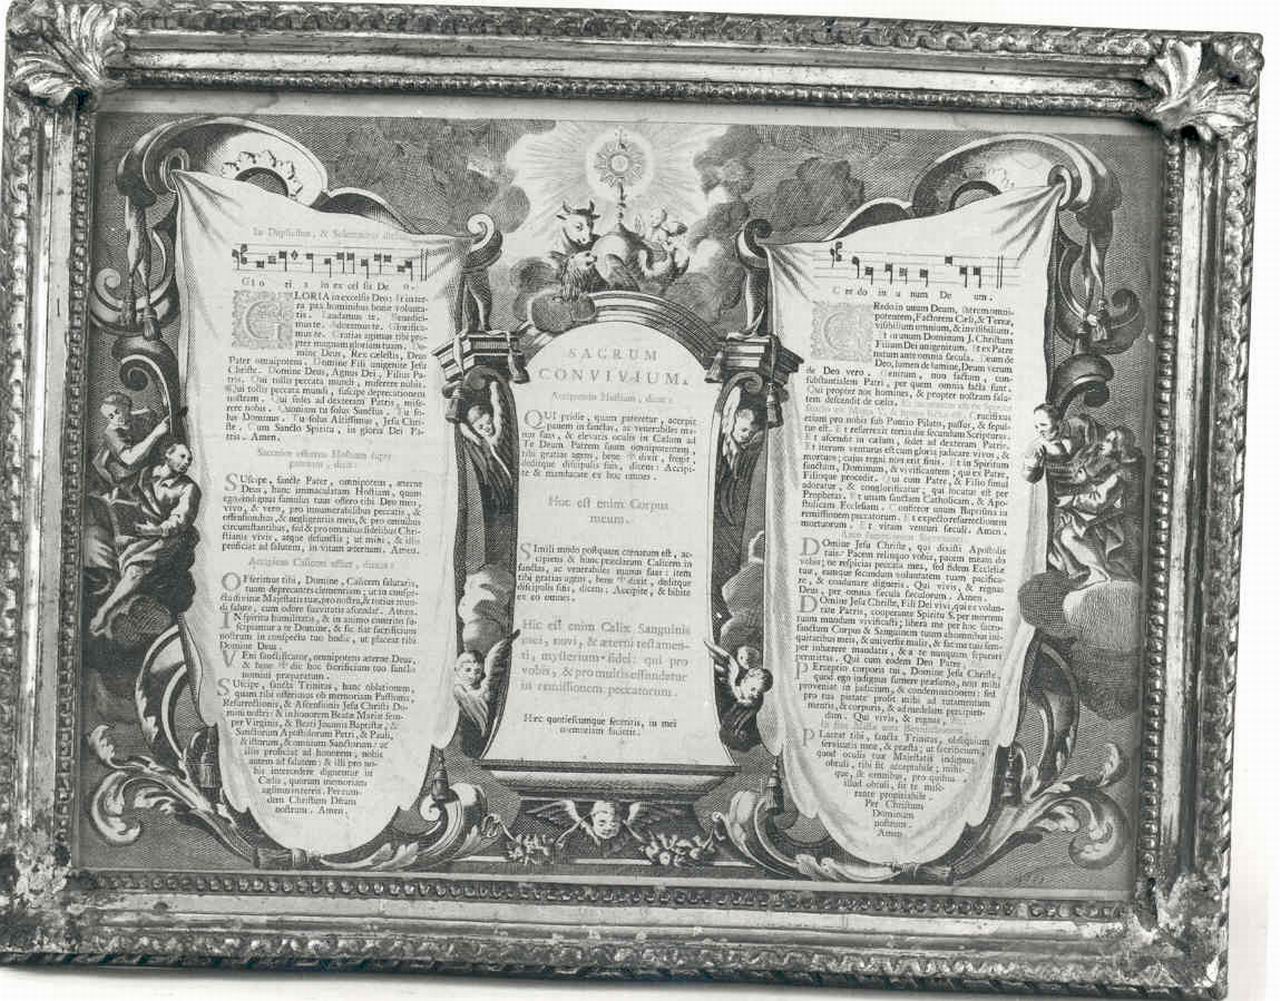 In Duplicibus, & Solemnibus dicitur
Glo ri a in ex cel sis De o.
GLORIA in excelsis Deo: Et in ter-
ra pax hominibus bonæ volunta-
tis. Laudamus te. Benedici-
mus te. Adoramus te. Glorifica-
mus te. Gratias agimus tibi pro-
pter magnam gloriam tuam. Do-
mine Deus, Rex cælestis, Deus
Pater omnipotens. Domine Fili unigenite Jesu
Christe. Domine Deus, Agnus Dei, Filius Pa-
tris. Qui tollis peccata mundi, miserere nobis.
Qui tollis peccata mundi, suscipe deprecationem
nostram. Qui sedes ad dexteram Patris, mise-
rere nobis. Quoniam tu solus Sanctus. Tu so-
lus Dominus. Tu solus Altissimus, Jesu Chri-
ste. Cum Sancto Spiritu, in gloria Dei Pa-
tris. Amen.
Sacerdos offerens Hostiam super
patenam, dicit:
SUscipe, sancte Pater, omnipotens, æterne
Deus, hanc immaculatam Hostiam, quam
ego indignus famulus tuus offero tibi Deo meo,
vivo, & vero, pro innumerabilibus peccatis, &
offensionibus, & negligentiis meis, & pro omnibus
circumstantibus, sed & pro omnibus fidelibus Chri-
stianis vivis, atque defunctis; ut mihi, & illis
proficiat ad salutem, in vitam æternam. Amen.
Accipiens Calicem offert, dicens:
OFferimus tibi, Domine, Calicem salutaris,
tuam deprecantes clementiam; ut in conspe-
ctu divinæ Majestatis tuæ, pro nostra, & totius mun-
di salute, cum odore suavitatis ascendat. Amen.
IN spiritu humilitatis, & in animo contrito su-
scipiamur a te Domine, & sic fiat sacrificium
nostrum in conspectu tuo hodie, ut placeat tibi
Domine Deus.
VEni sanctificator, omnipotens æterne Deus,
& bene ✠ dic hoc sacrificium tuo sancto
nomini præparatum.
SUscipe, sancta Trinitas, hanc oblationem,
quam tibi offerimus ob memoriam Passionis,
Resurrectionis, & Ascensionis Jesu Christi Do-
mini nostri: & in honorem Beatæ Mariæ sem-
per Virginis, & Beati Joannis Baptistæ, &
Sanctorum Apostolorum Petri, & Pauli,
& istorum, & omnium Sanctorum: ut
illis proficiat ad honorem, nobis
autem ad salutem: & illi pro no-
bis intercedere dignentur in
Cælis, quorum memoriam
agimus in terris. Per eun-
dem Christum Dnum
nostrum. Amen.
SACRUM
CONVIVIUM.
Accipiendo Hostiam, dicit:
QUI pridie, quam pateretur, accepit
panem in sanctas, ac venerabiles ma-
nus suas, & elevatis oculis in Cælum ad
Te Deum Patrem suum omnipotentem,
tibi gratias agens, bene ✠ dixit, fregit,
deditque discipulis suis, dicens: Accipi-
te & manducate ex hoc omnes.
Hoc est enim Corpus
meum.
SImili modo postquam cœnatum est, ac-
cipiens & hunc præclarum Calicem in
sanctas, ac venerabiles manus suas: item
tibi gratias agens, bene ✠ dixit, deditque
discipulis suis, dicens: Accipite, & bibite
ex eo omnes.
Hic est enim Calix Sanguinis
mei, novi, & æterni testamen-
ti, mysterium fidei: qui pro
vobis, & pro multis effundetur
in remissionem peccatorum.
Hæc quotiescumque feceritis, in mei
memoriam facietis.
Cre do in u num De um.
CRedo in unum Deum, Patrem omni-
potentem, Factorem Cæli, & Terræ,
visibilium omnium, & invisibilium.
Et in unum Dominum J. Christum
Filium Dei unigenitum. Et ex Patre
natum ante omnia sæcula. Deum de
Deo, lumen de lumine, Deum verum
de Deo vero. Genitum, non factum, con-
substantialem Patri, per quem omnia facta sunt.
Qui propter nos homines, & propter nostram salu-
tem descendit de cælis. Et incarnatus est de Spiritu
sancto ex Maria Virgine: Crucifixus
etiam pro nobis sub Pontio Pilato, passus, & sepul-
tus est. Et resurrexit tertia die secundum Scripturas.
Et ascendit in cælum, sedet ad dexteram Patris.
Et iterum venturus est cum gloria judicare vivos, &
mortuos: cujus regni non erit finis. Et in Spiritum
sanctum, Dominum, & vivificantem; qui ex Patre,
Filioque procedit. Qui cum Patre, & Filio simul
adoratur, & conglorificatur; qui locutus est per
Prophetas. Et unam sanctam Catholicam, & Apo-
stolicam Ecclesiam. Confiteor unum Baptisma in
remissionem peccatorum. Et expecto resurrectionem
mortuorum. Et vitam venturi sæculi. Amen.
DOmine Jesu Christe, qui dixisti Apostolis
tuis: Pacem relinquo vobis, pacem meam do
vobis; ne respicias peccata mea, sed fidem Ecclesiæ
tuæ, eamque secundum voluntatem tuam pacifica-
re, & coadunare digneris. Qui vivis, & regnas
Deus, per omnia sæcula sæculorum. Amen.
DOmine Jesu Christe, Fili Dei vivi, qui ex volun-
tate Patris, cooperante Spiritu S. per mortem
tuam mundum vivificasti; libera me per hoc sacro-
sanctum Corpus & Sanguinem tuum ab omnibus ini-
quitatibus meis, & universis malis, & fac me tuis sem-
per inhærere mandatis, & a te nunquam separari
permittas. Qui cum eodem Deo Patre,
PErceptio corporis tui, Domine Jesu Christe,
quod ego indignus sumere præsumo, non mihi
proveniat in judicium, & condemnationem: sed
pro tua pietate prosit mihi ad tutamentum
mentis, & corporis, & ad medelam percipien-
dam. Qui vivis, & regnas,
PLaceat tibi, sancta Trinitas, obsequium
servitutis meæ, & præsta; ut sacrificium,
quod oculis tuæ Majestatis indignus
obtuli, tibi sit acceptabile; mihi-
que, & omnibus, pro quibus
illud obtuli, sit te mise-
rante propitiabile.
Per Christum
Dominum
nostrum.
Amen